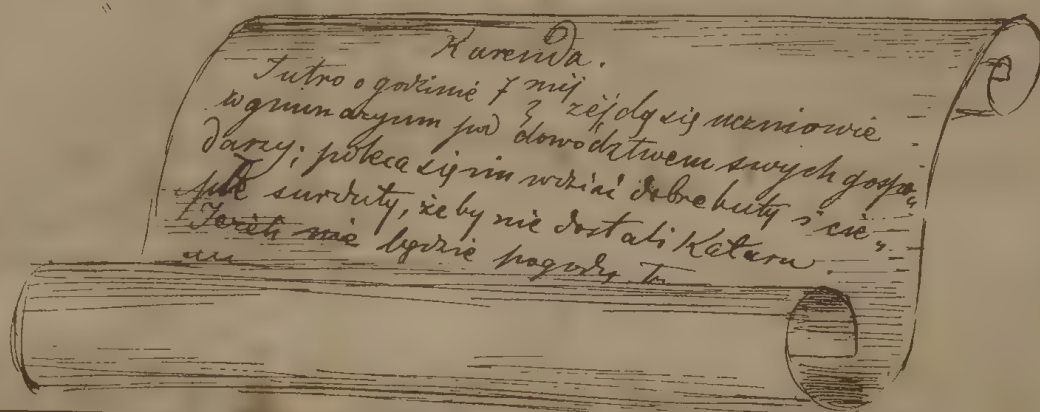 Kurenda.
Jutro o godzinie 7 mij zéjdą się uczniowie
w gimnazyum pod dowództwem swych gospo„
darzy; poleca się im wziąć dobre buty i cie„
płe surduty, żeby nie dostali Kataru.
Jeżeli nie będzie pogody to